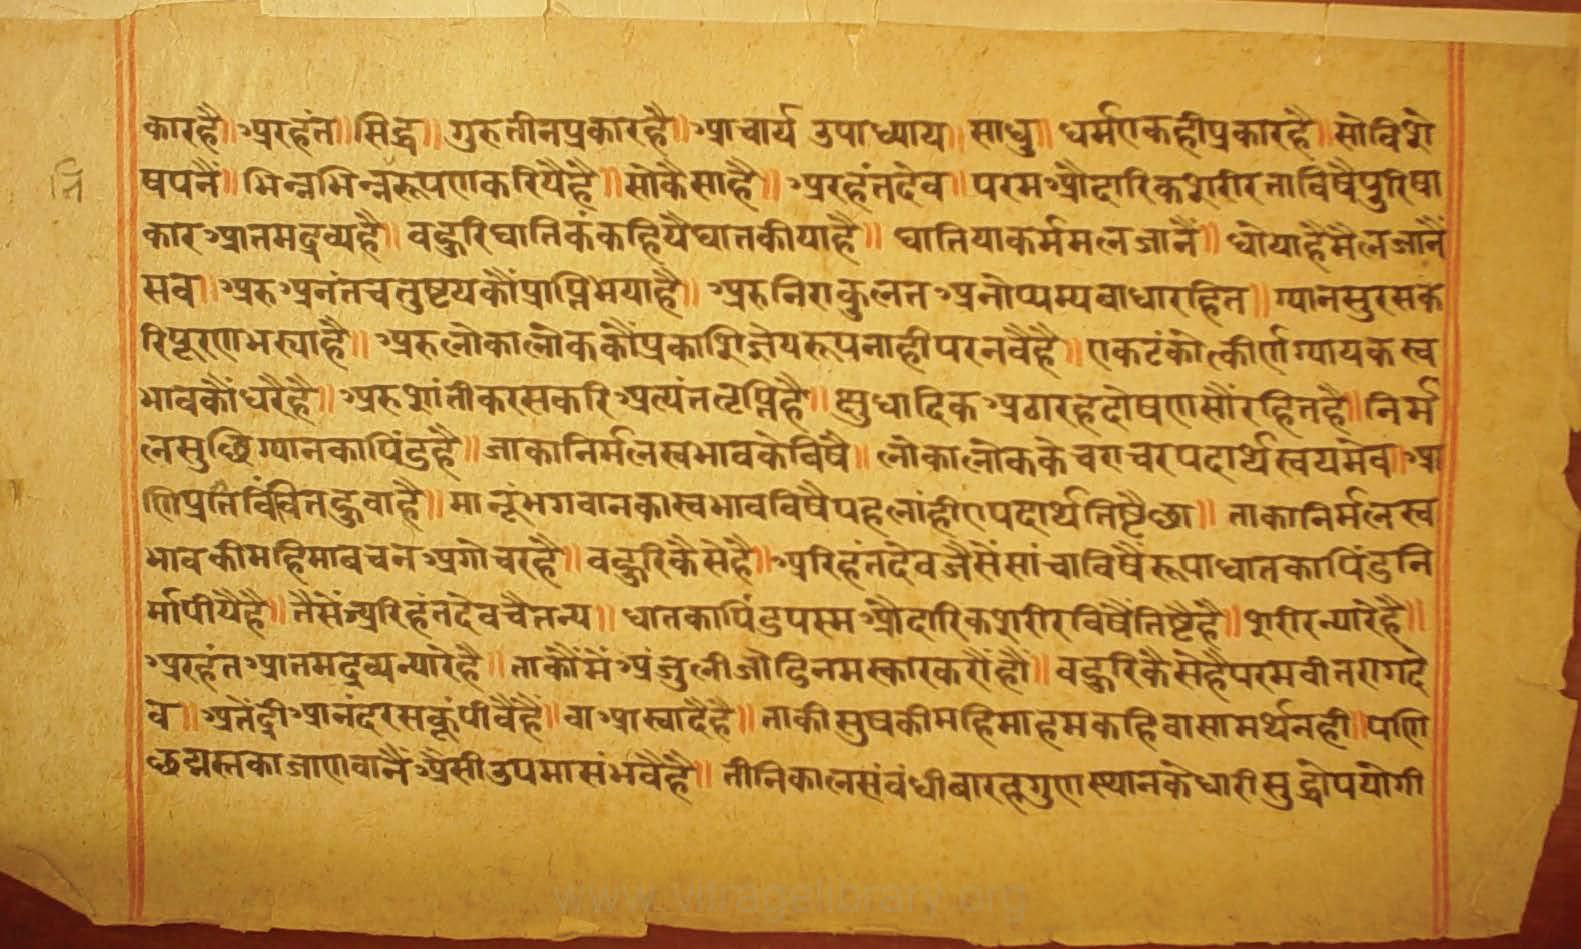 कारहै॥ अरहंत॥ सिद्ध॥ गुरुतीनप्रकारहै॥ आचार्य उपाध्याय॥ साधु॥ धर्मएकहीप्रकारहै॥ सोविशे
षपनैं॥ भिन्नभिन्नरूपणकरियैहै॥ सोकैसाहै॥ अरहंतदेव॥ परमऔदारिकशरीरताविषैपुरिषा
कारआतमद्रव्यहै॥ बहुरिघातिकंकहियैघातकीयाहै॥ घातियाकर्ममलजानैं॥ धोयाहैमैलजानैं
सव॥ अरुअनंतचतुष्टयकौंप्राप्तिभयाहै॥ अरुनिराकुलतअनोप्यम्यबाधारहित॥ ग्यानसुरसकै
रिपूरणभर्‍याहै॥ अरुलोकालोककौंप्रकाशिज्ञेयरूपनाहीपरनवैहै॥ एकटंकोत्कीर्णग्यायकस्व
भावकौंधरैहै॥ अरुशांतीकरसकरिअत्यंततृप्तिहै॥ क्षुधादिकअठारहदोषणसौंरहितहै॥ निर्म
लसुद्धिग्यानकापिंडहै॥ जाकानिर्मलस्वभावकेविषै॥ लोकालोककेचराचरपदार्थस्वयमेव॥ आ
णिप्रतिविंवितहुवाहै॥ मानूंभगवानकास्वभावविषैपहलांहीएपदार्थतिष्टैछा॥ ताकानिर्मलस्व
भावकीमहिमाबचनअगोचरहै॥ बहुरिकैसेहै॥ अरिहंतदेवजैसेंसांचाविषैरूपाधातकापिंडनि
र्मापीयैहै॥ तैसेंअरिहंतदेवचैतन्य॥ धातकापिंडपरमऔदारिकशरीरविषैंतिष्टैहै॥ शरीरन्यारेहै॥
अरहंतआतमद्रव्यन्यारेहै॥ ताकौंमेंअंजुलीजोटिनमस्कारकरौंहौं॥ बहुरिकैसेहैपरमवीतरागदे
व॥ अतेंद्रीआनंदरसकूंपीवैंहैं॥ वाआस्वादैहै॥ ताकीसुषकीमहिमाहमकहिवासामर्थनही॥ पणि
छद्मस्तकाजाणवानैंअैसीउपमासंभवैहै॥ तीनिकालसंवंधीबारह्मगुणस्थानकेधारीसुद्धोपयोगी
www.vitragelibrary.org